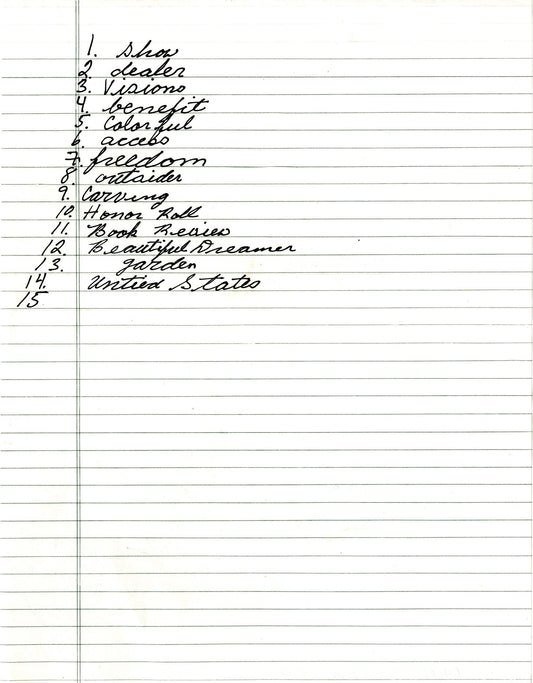 1. Show
2. dealer
3. Visions
4. benefit
5. Colorful
6. access
7. freedom
8. outsider
9. Carving
10. Honor Roll
11. Book Review
12. Beautiful Dreamer
13. garden
14. Untied States
15